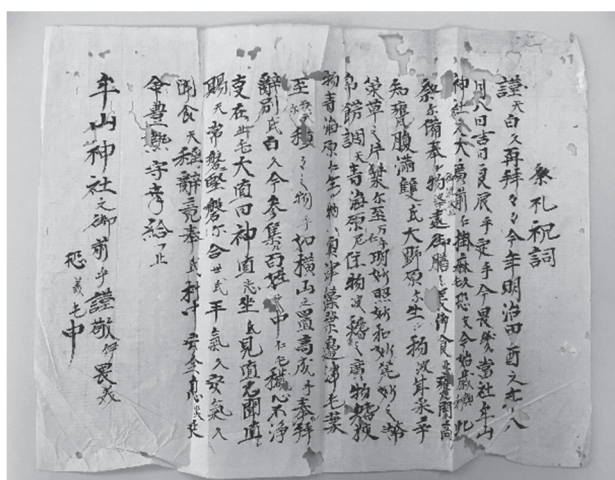 祭礼祝詞
謹天白久再拝々々今年明治四酉之八
月八日吉日良辰乎定弖今畏幾當社牟山
神社之大廣前仁掛麻久恐支今始嚴
祭尓備奉物波遠御膳之長御食止甕閉高
知甕腹満雙氐大野原尓生留物波甘菜辛
菜草之片葉尓至万仁明妙照妙和妙荒妙之幣
帛餝調天青海原尓住物波鰭之廣物鰭狭
物青海原仁生留物波奥津藻菜邊津毛葉
至種々之物乎如横山之置高成弖奉拜
辭別氐白久今参集留百姓之中仁毛穢心不浄
支在止毛大直日神直志坐氐見直志聞直
賜天常磐堅磐尓合世氐平氣久安氣久
聞食天稱辭竟奉氐村中安全息災延
命豊熟守幸給江止
牟山神社之御前乎謹敬畏美
恐美毛申